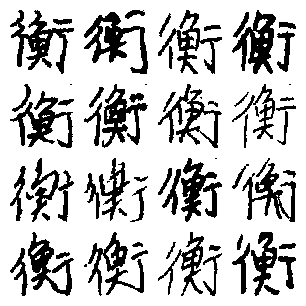 衡衡衡衡
衡衡衡衡
衡衡衡衡
衡衡衡衡